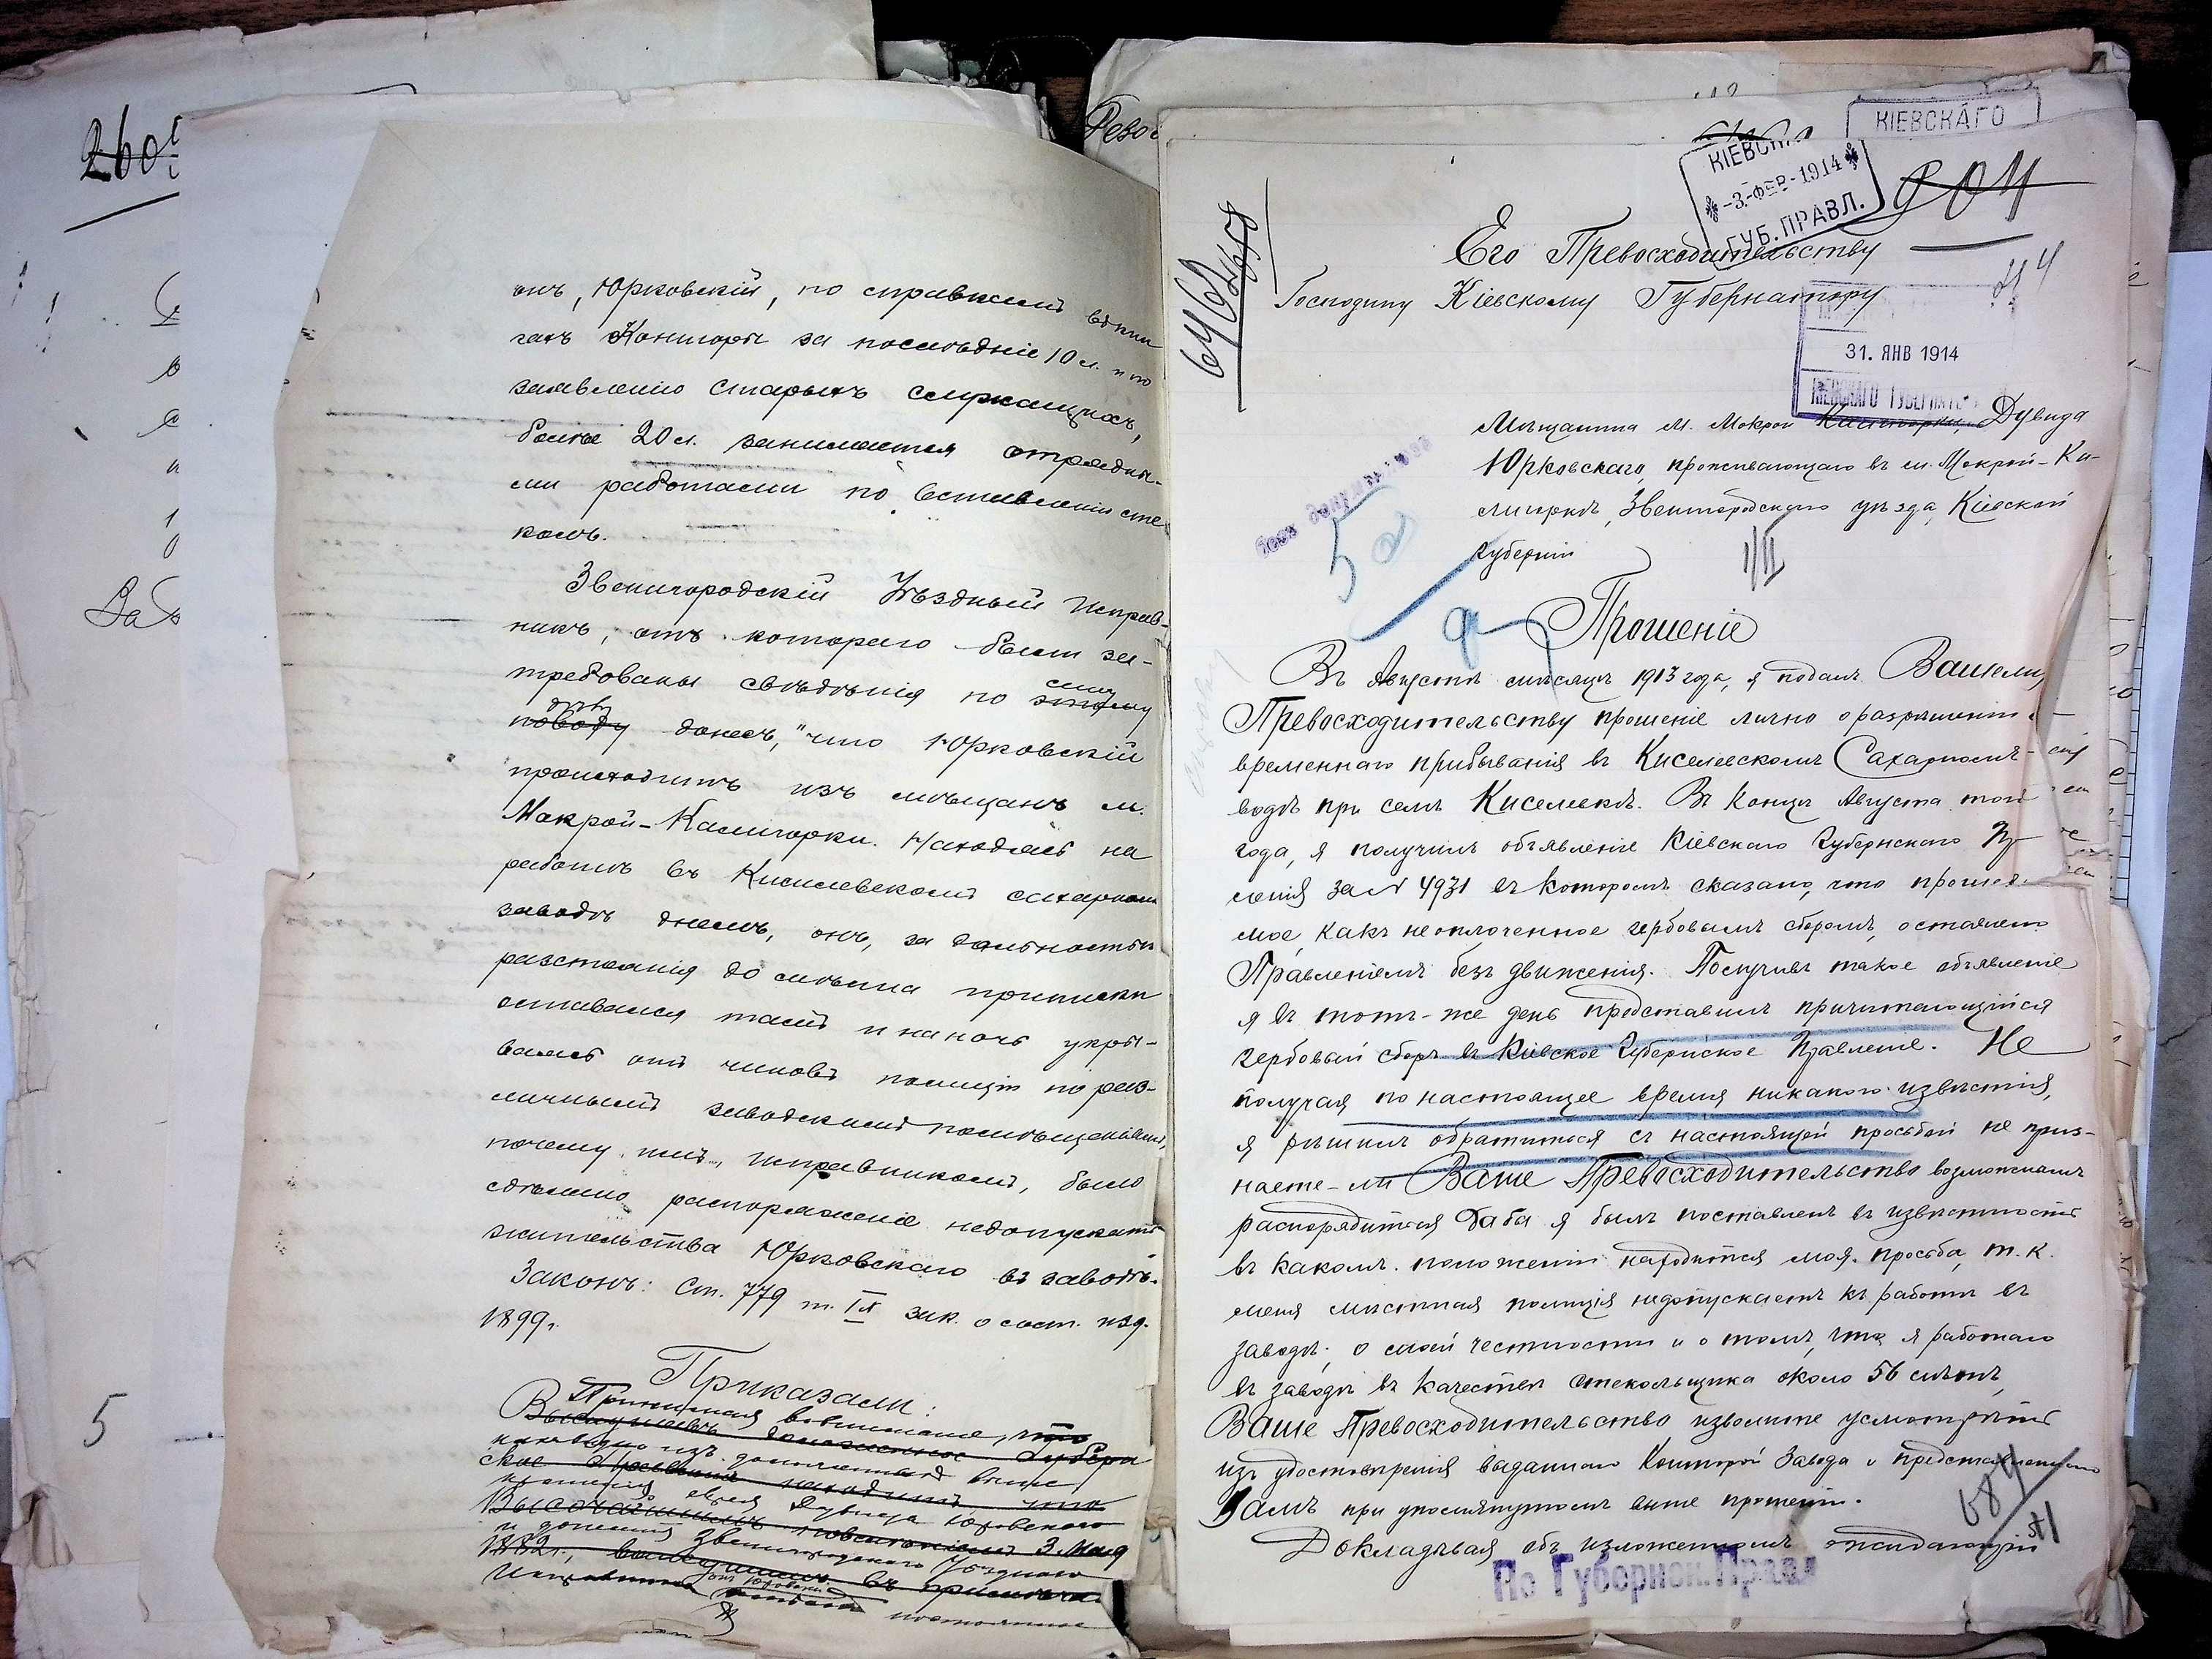 260
За
5
онъ, Юрковскій, по справкамъ въ кни
гахъ Конторы за послѣдніе 10 л. и по
заявленію старыхъ служащихъ,
более 20 л. занимается отрядны-
ми работами по вставленію сте
колъ.
Звенигородскій Уѣздный Исправ-
никъ, отъ котораго были за-
требованы свѣдѣнія по этому
сему
поводу донесъ, "что Юрковскій
дѣлу
происходитъ изъ мѣщанъ м.
Мокрой-Калигорки. Находясь на
работѣ въ Киселевскомъ сахарномъ
заводѣ днемъ, онъ, за дальностью
разстоянія до мѣста приписки
оставался тамъ и на ночь укры-
ваясь отъ чиновъ полиціи по раз-
личнымъ заводскимъ помѣщеніямъ,
почему имъ, Исправникомъ, было
сдѣлано распоряженіе недопускать
жительства Юрковскаго въ заводѣ.
Законъ: Ст. 779 т. IX зак. о сост. изд.
1899 г.
Приказали:
Принимая во вниманіе, что
Выслушавъ доложенное Губерн
какъ видно изъ
ское Правленіе находитъ что
прошенія еврея Дувида Юрковскаго
Высочайшимъ повелѣніемъ 3 Мая
и донесенія Звенигородскаго Уѣзднаго
1882 г., въ примѣча
Исправника
постоянное
Резо
КІЕВСКАГО
КІЕВСК
-3.-ФЕВ-1914
ГУБ. ПРАВЛ.
Его Превосходительству
Господину Кіевскому Губернатору
31. ЯНВ 1914
КІЕВСКАГО ГУБЕРНАТ
Мѣщанина м. Мокрой Калигорки, Дувида
Юрковскаго, проживающаго въ м. Мокрой-Ка-
лигоркѣ, Звенигородскаго уѣзда, Кіевской
губерніи
Прошеніе
Въ Августѣ мѣсяцѣ 1913 года, я подалъ Вашему
Превосходительству прошеніе лично о разрѣшеніи
временнаго прибыванія въ Киселевскомъ Сахарномъ
водѣ при селѣ Киселевкѣ. Въ Концѣ Августа того
года, я получилъ объявленіе Кіевскаго Губернскаго Пр
ленія за N 4931 въ которомъ сказано, что прошен
мое, какъ неоплоченное гербовымъ сборомъ, оставлено
Правленіемъ безъ движенія. Получивъ такое объявленіе
я въ тотъ-же день представилъ причитающійся
гербовый сборъ въ Кіевское Губернское Правленіе. Не
получая по настоящее время никакого извѣстія,
я рѣшилъ обратиться съ настоящей просьбой не приз-
наете-ли Ваше Превосходительство возможнымъ
распорядиться дабы я былъ поставленъ въ извѣстность
въ какомъ положеніи находится моя просьба, т. к.
меня мѣстная полиція недопускаетъ къ работѣ въ
заводѣ; о моей честности и о томъ, что я работаю
въ заводѣ въ качествѣ стекольщика около 56 лѣтъ,
Ваше Превосходительство изволите усмотрѣть
изъ удостовѣренія выданнаго Конторой Завода и представленнаго
Вамъ при упомянутомъ выше прошеніи.
Докладывая объ изложенномъ ожидающій
По Губернск. Правл